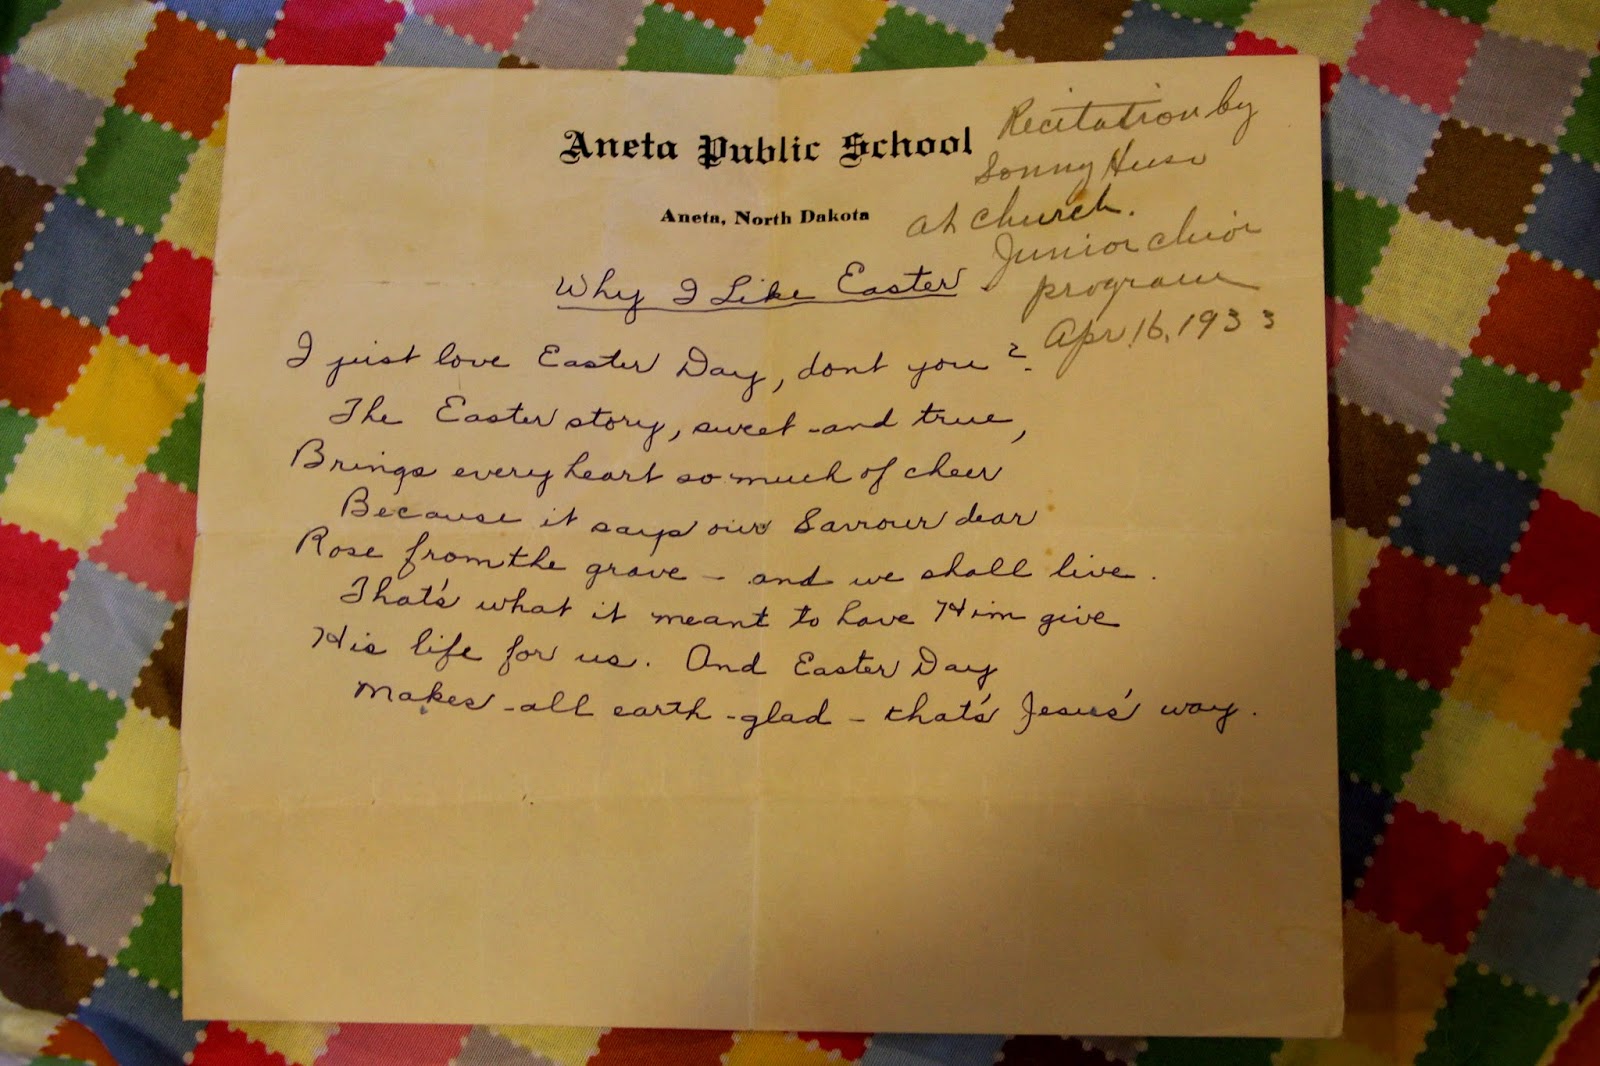 Aneta Public School
Aneta, North Dakota
Recitation by
Sonny Huse
at church.
Junior chior
program
Apr. 16, 1933
Why I Like Easter
I just love Easter Day, dont you?
The Easter story, sweet and true,
Brings every heart so much of cheer
Because it says our Saviour dear
Rose from the grave - and we shall live.
That's what it meant to have Him give
His life for us. And Easter Day
Makes all earth glad - that's Jesus' way.